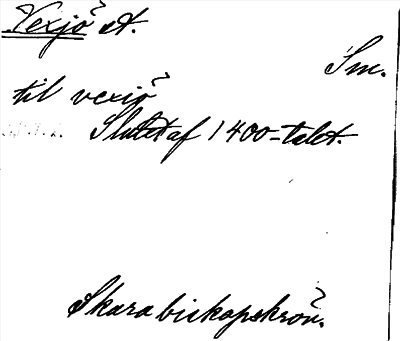 Vexjö st.
Sm.
til vexiö
Slutet af 1400-talet.
Skara biskopskrön.